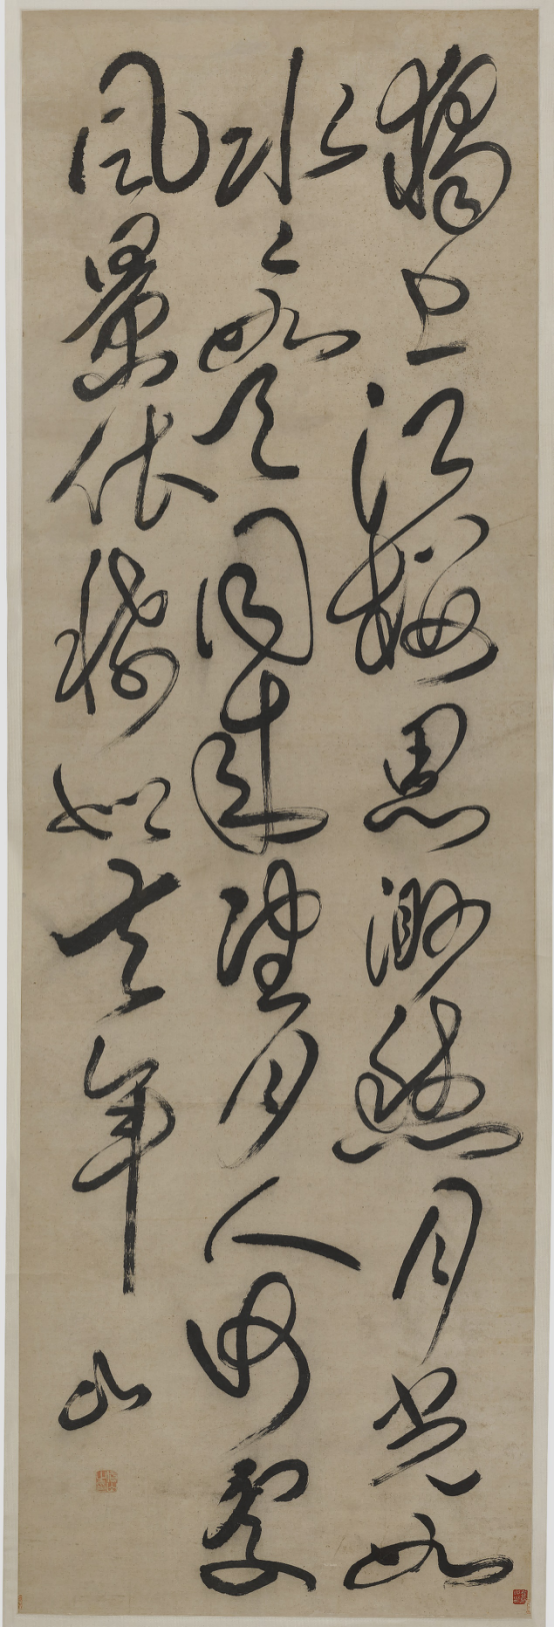 獨上江樓思渺然月光如
水々如天同來望月人何處
風景依稀似去年
山